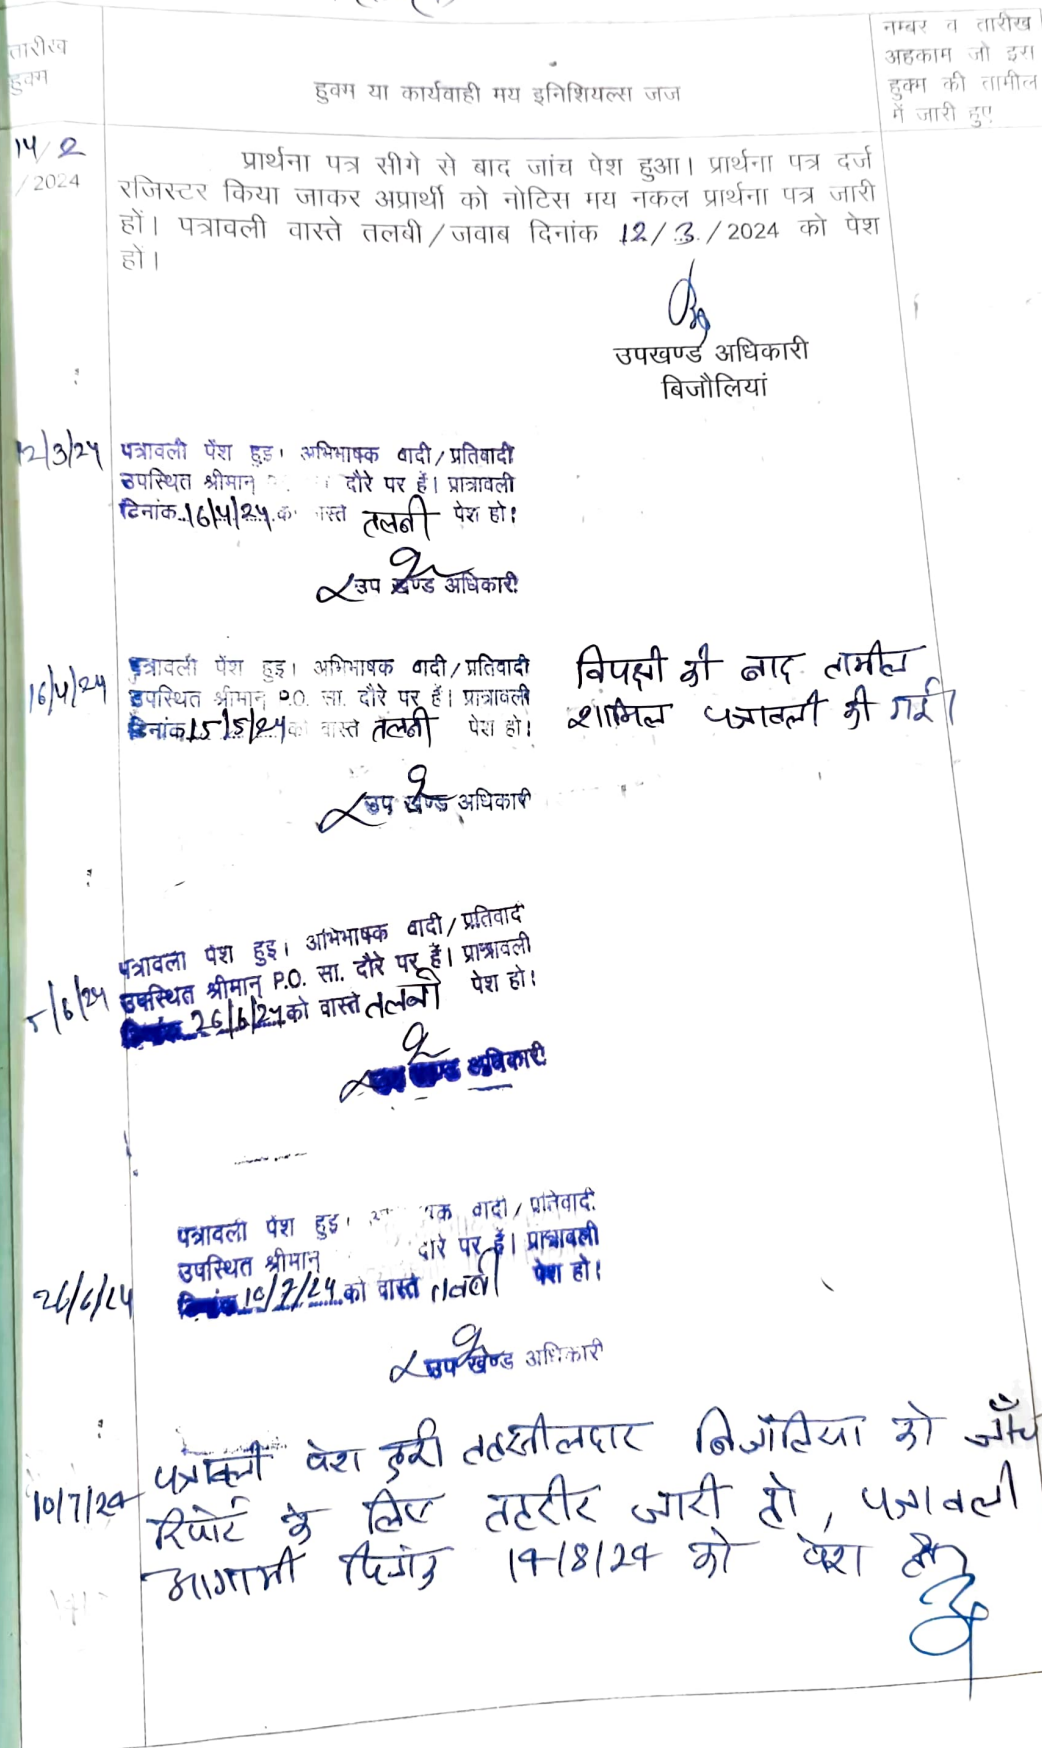 तारीख
हुक्म
हुक्म या कार्यवाही मय इनिशियल्स जज
नम्बर व तारीख
अहकाम जो इस
हुक्म की तामील
में जारी हुए
14/2
/2024
प्रार्थना पत्र सीगे से बाद जांच पेश हुआ। प्रार्थना पत्र दर्ज
रजिस्टर किया जाकर अप्रार्थी को नोटिस मय नकल प्रार्थना पत्र जारी
हों। पत्रावली वास्ते तलबी/जवाब दिनांक 12/3/2024 को पेश
हों।
उपखण्ड अधिकारी
बिजौलियां
12/3/24 पत्रावली पेंश हुइ। अभिभाषक वादी/प्रतिवादी
उपस्थित श्रीमान् दौरे पर हैं। प्रात्रावली
दिनांक 16/4/24 वास्ते तलबी पेश हो।
उप खण्ड अधिकारी
16/4/24 पत्रावली पेंश हुइ। अभिभाषक वादी/प्रतिवादी
उपस्थित श्रीमान् P.O. सा. दौरे पर हैं। प्रात्रावली
दिनांक 15/5/24 को वास्ते तलबी पेश हो।
विपक्षी की बाद तामील
शामिल पत्रावली की गई।
उप खण्ड अधिकारी
पत्रावली पेश हुइ। अभिभाषक वादी/प्रतिवादी
5/6/24 उपस्थित श्रीमान् P.O. सा. दौरे पर हैं। प्रात्रावली
दिनांक 26/6/24 को वास्ते तलबी पेश हो।
उप खण्ड अधिकारी
पत्रावली पेंश हुइ। वादी/प्रतिवादी
उपस्थित श्रीमान् दौरे पर हैं। प्रात्रावली
26/6/24 दिनांक 10/7/24 को वास्ते तलबी पेश हो।
उप खण्ड अधिकारी
पत्रावली पेश हुयी तहसीलदार बिजौलिया को जाँच
10/7/24 रिपोर्ट के लिए तहरीर जारी हो, पत्रावली
आगामी दिनांक 14/8/24 को पेश हो